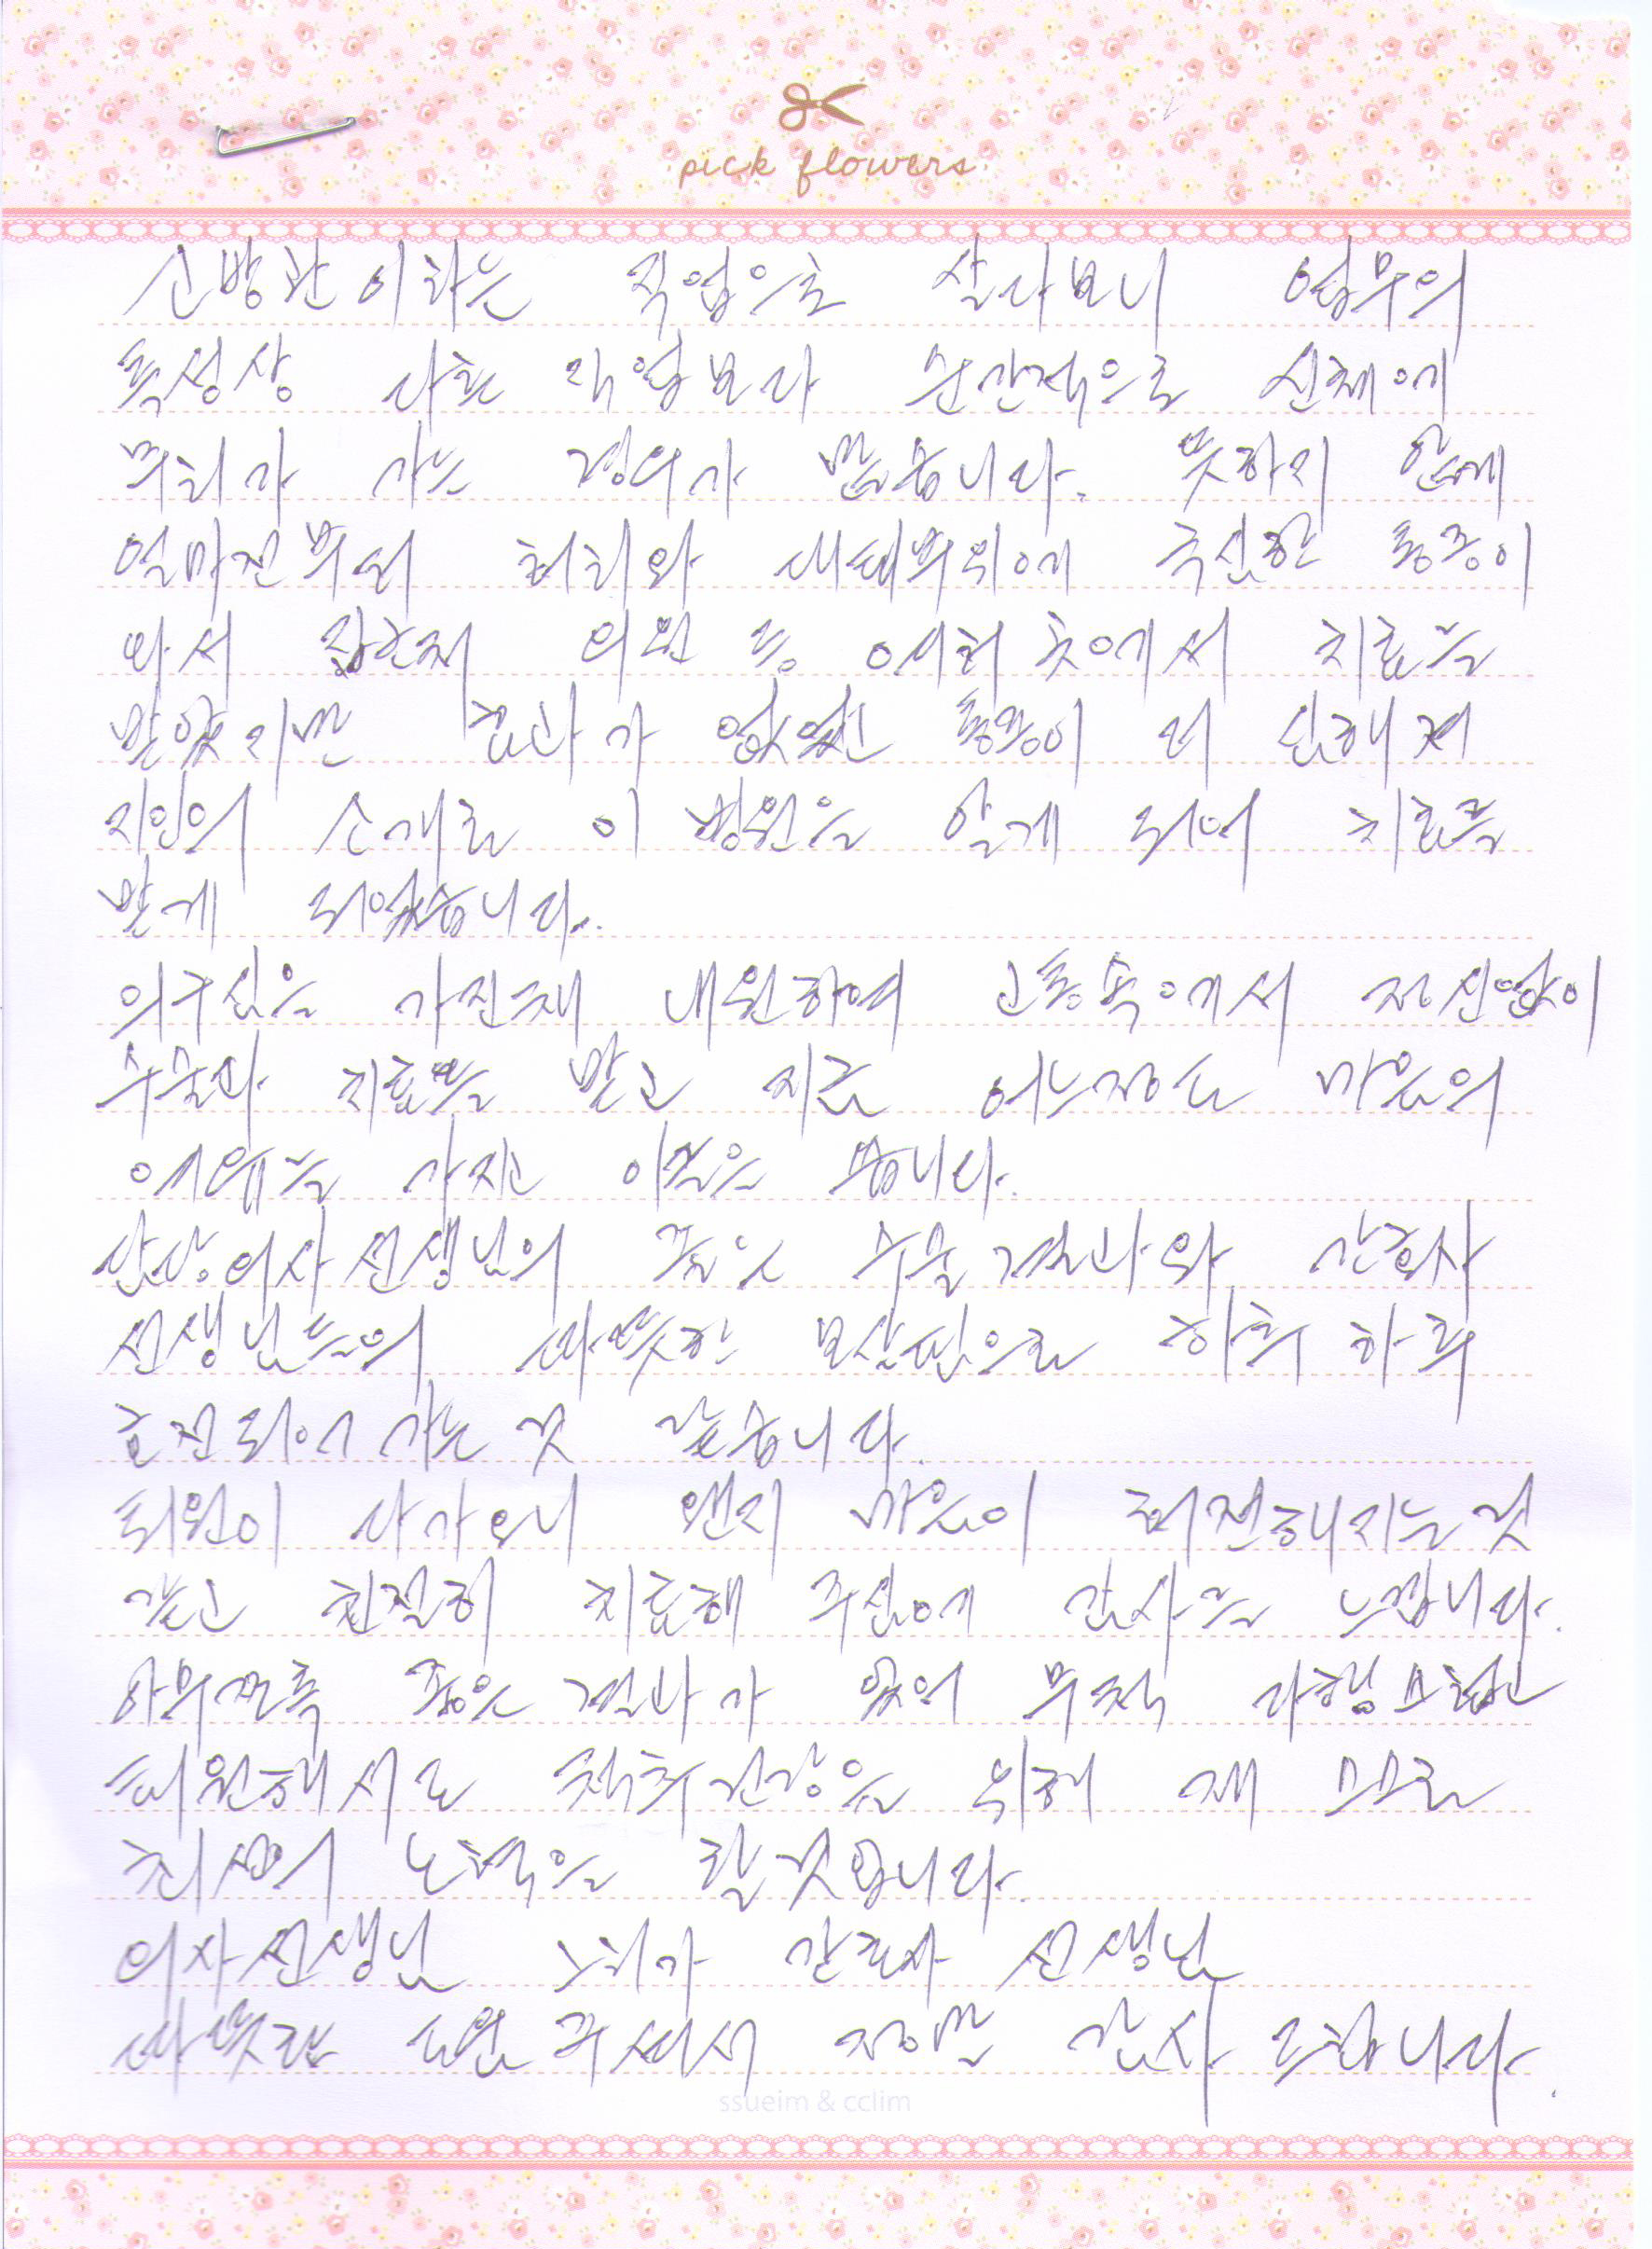 pick flowers
소방관이라는 직업으로 살다보니 업무의
특성상 다른 직업보다 순간적으로 신체에
무리가 가는 경우가 많습니다. 뜻하지 않게
얼마전부터 허리와 대퇴부위에 극심한 통증이
와서 의원 등 여러곳에서 치료를
받았지만 효과가 없었고 통증이 더 심해져
지인의 소개로 이 병원을 알게 되어 치료를
받게 되었습니다.
의구심을 가진채 내원하여 고통속에서 정신없이
수술과 치료를 받고 지금 어느정도 마음의
여유를 가지고 이글을 씁니다.
담당의사선생님의 좋은 수술결과와 간호사
선생님들의 따뜻한 보살핌으로 하루 하루
호전되어 가는 것 같습니다.
퇴원이 다가오니 왠지 마음이 허전해지는것
같고 친절히 치료해 주심에 감사를 느낍니다.
아무쪼록 좋은 결과가 있어 무척 다행스럽고
퇴원해서도 척추건강을 위해 제 스스로
최선의 노력을 할것입니다.
의사선생님 간호사 선생님
따뜻한 도움 주셔서 정말 감사 드립니다.
ssueim & cclim